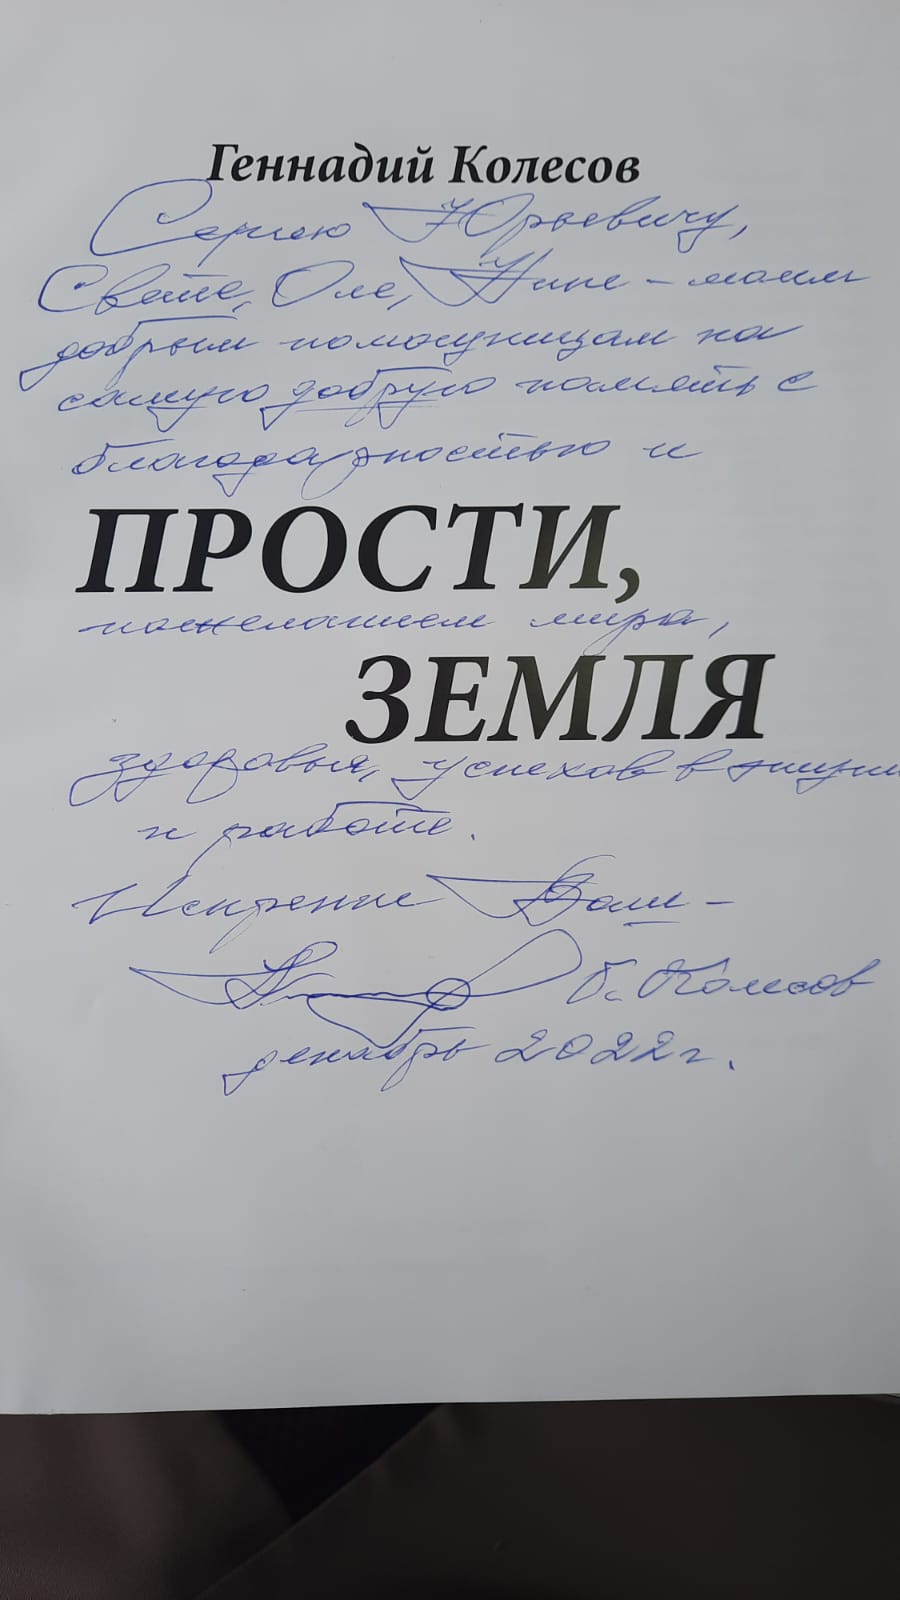 Геннадий Колесов
Сергею Юрьевичу,
Свете, Оле, Нине – моим
добрым помощницам на
самую добрую память с
благодарностью и
ПРОСТИ,
пожеланием мира,
ЗЕМЛЯ
здоровья, успехов в жизни
и работе.
Искренне Ваш –
Г. Колесов
декабрь 2022 г.